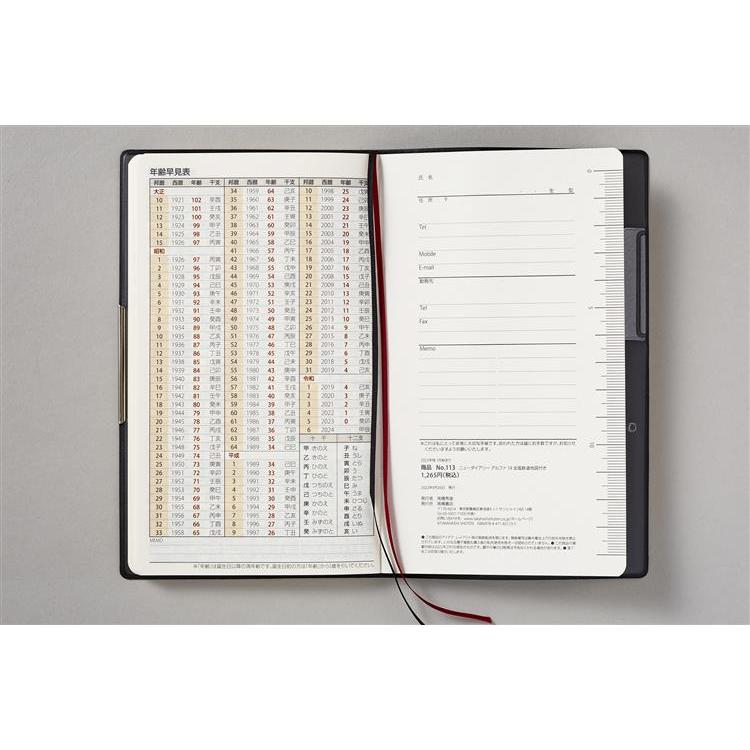 年齢早見表
邦暦 西暦 年齢 干支
大正
10 1921 102 辛酉
11 1922 101 壬戌
12 1923 100 癸亥
13 1924 99 甲子
14 1925 98 乙丑
15 1926 97 丙寅
昭和
1 1926 97 丙寅
2 1927 96 丁卯
3 1928 95 戊辰
4 1929 94 己巳
5 1930 93 庚午
6 1931 92 辛未
7 1932 91 壬申
8 1933 90 癸酉
9 1934 89 甲戌
10 1935 88 乙亥
11 1936 87 丙子
12 1937 86 丁丑
13 1938 85 戊寅
14 1939 84 己卯
15 1940 83 庚辰
16 1941 82 辛巳
17 1942 81 壬午
18 1943 80 癸未
19 1944 79 甲申
20 1945 78 乙酉
21 1946 77 丙戌
22 1947 76 丁亥
23 1948 75 戊子
24 1949 74 己丑
25 1950 73 庚寅
26 1951 72 辛卯
27 1952 71 壬辰
28 1953 70 癸巳
29 1954 69 甲午
30 1955 68 乙未
31 1956 67 丙申
32 1957 66 丁酉
33 1958 65 戊戌
邦暦 西暦 年齢 干支
34 1959 64 己亥
35 1960 63 庚子
36 1961 62 辛丑
37 1962 61 壬寅
38 1963 60 癸卯
39 1964 59 甲辰
40 1965 58 乙巳
41 1966 57 丙午
42 1967 56 丁未
43 1968 55 戊申
44 1969 54 己酉
45 1970 53 庚戌
46 1971 52 辛亥
47 1972 51 壬子
48 1973 50 癸丑
49 1974 49 甲寅
50 1975 48 乙卯
51 1976 47 丙辰
52 1977 46 丁巳
53 1978 45 戊午
54 1979 44 己未
55 1980 43 庚申
56 1981 42 辛酉
57 1982 41 壬戌
58 1983 40 癸亥
59 1984 39 甲子
60 1985 38 乙丑
61 1986 37 丙寅
62 1987 36 丁卯
63 1988 35 戊辰
64 1989 34 己巳
平成
1 1989 34 己巳
2 1990 33 庚午
3 1991 32 辛未
4 1992 31 壬申
5 1993 30 癸酉
6 1994 29 甲戌
7 1995 28 乙亥
8 1996 27 丙子
9 1997 26 丁丑
邦暦 西暦 年齢 干支
10 1998 25 戊寅
11 1999 24 己卯
12 2000 23 庚辰
13 2001 22 辛巳
14 2002 21 壬午
15 2003 20 癸未
16 2004 19 甲申
17 2005 18 乙酉
18 2006 17 丙戌
19 2007 16 丁亥
20 2008 15 戊子
21 2009 14 己丑
22 2010 13 庚寅
23 2011 12 辛卯
24 2012 11 壬辰
25 2013 10 癸巳
26 2014 9 甲午
27 2015 8 乙未
28 2016 7 丙申
29 2017 6 丁酉
30 2018 5 戊戌
31 2019 4 己亥
令和
1 2019 4 己亥
2 2020 3 庚子
3 2021 2 辛丑
4 2022 1 壬寅
5 2023 0 癸卯
6 2024 甲辰
十干 十二支
甲 きのえ 子 ね
乙 きのと 丑 うし
丙 ひのえ 寅 とら
丁 ひのと 卯 う
戊 つちのえ 辰 たつ
己 つちのと 巳 み
庚 かのえ 午 うま
辛 かのと 未 ひつじ
壬 みずのえ 申 さる
癸 みずのと 酉 とり
戌 いぬ
亥 い
MEMO
※「年齢」は誕生日以降の満年齢です。誕生日前の方は「年齢」から1歳を引いてください。
氏名
年 型
住所 〒
Tel
Mobile
E-mail
勤務先
Tel
Fax
Memo
0
5
10
※これは私にとって非常に大切な手帳です。拾われた方は誠にお手数ですが、お知らせ
くださいますようお願いいたします。
商品 No.113 ニューダイアリー アルファ 13 全国鉄道地図付き
1,265円(税込)
発行者 髙橋秀雄
発行所 髙橋書店